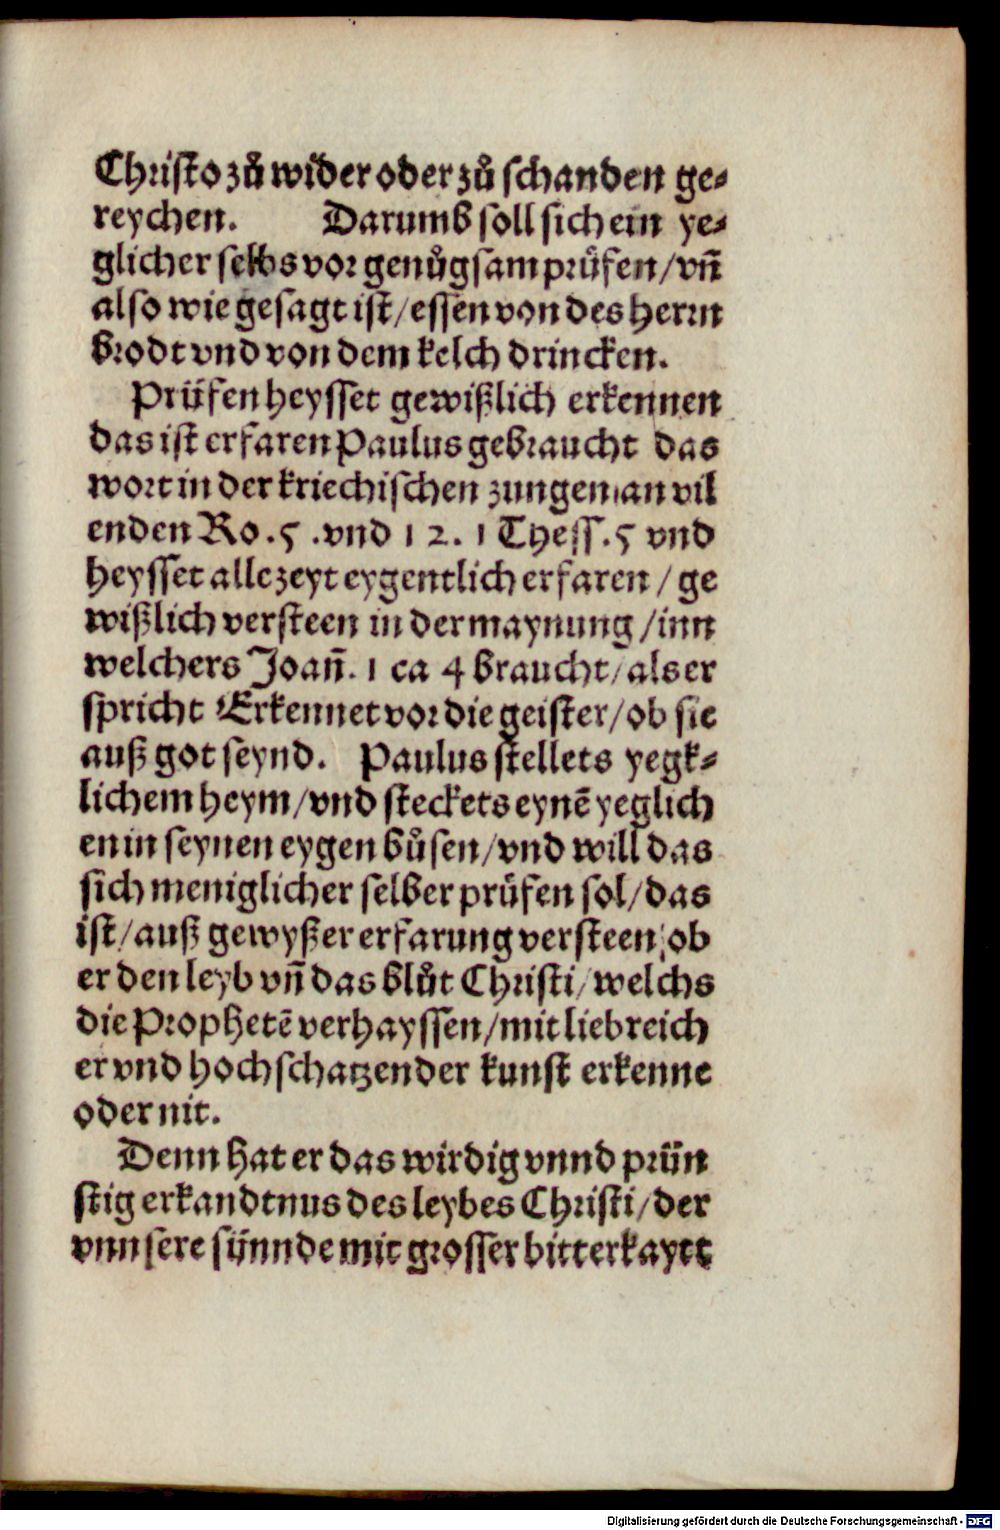 Christo zů wider oder zů schanden ge-
reychen. Darumb soll sich ein ye-
glicher selbs vor genůgsam prüfen/vn̄
also wie gesagt ist/essen von des herrn
brodt vnd von dem kelch drincken.
Prüfen heysset gewißlich erkennen
das ist erfaren Paulus gebraucht das
wort in der kriechischen zungen an vil
enden Ro.5.vnd 12. 1 Thess.5 vnd
heysset allezeyt eygentlich erfaren/ge
wißlich versteen in der maynung/inn
welchers Joan̄. 1 ca 4 braucht/als er
spricht Erkennet vor die geister/ob sie
auß got seynd. Paulus stellets yegk-
lichem heym/vnd steckets eynē yeglich
en in seynen eygen bůsen/vnd will das
sich meniglicher selber prüfen sol/das
ist/auß gewyßer erfarung versteen/ob
er den leyb vn̄ das blůt Christi/welchs
die Prophetē verhayssen/mit liebreich
er vnd hochschatzender kunst erkenne
oder nit.
Denn hat er das wirdig vnnd prün
stig erkandtnus des leybes Christi/der
vnnsere sünnde mit grosser bitterkaytt
Digitalisierung gefördert durch die Deutsche Forschungsgemeinschaft - DFG